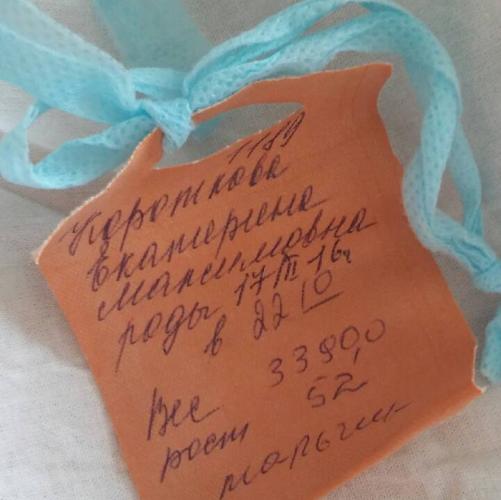 1189
Короткова
Екатерина
Максимовна
роды 17/III 16г
в 22 10
Вес 3390,0
рост 52
мальчик